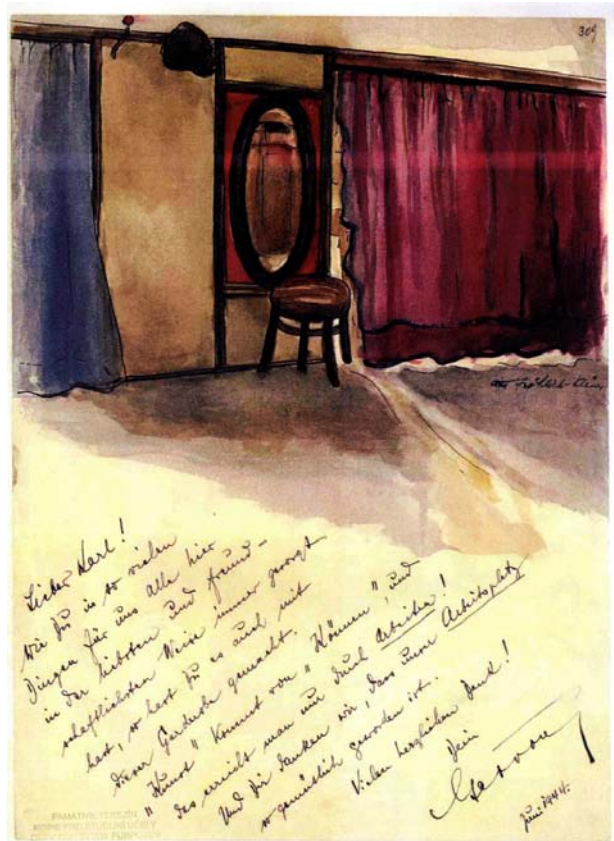 309
Lieber Karl!
Wie Du in so vielen
Dingen für uns alle hier
in der liebsten und freund-
schaftlichsten Weise immer gesorgt
hast, so hast Du es auch mit
dieser Garderobe gemacht.
"Kunst" kommt von "Können", und
das erreicht man nur durch Arbeiten!
Und Dir danken wir, dass unser Arbeitsplatz
so gemütlich geworden ist.
Vielen herzlichen Dank!
Dein
Gerron
Juni 1944.
PAMÁTNÍK TEREZÍN